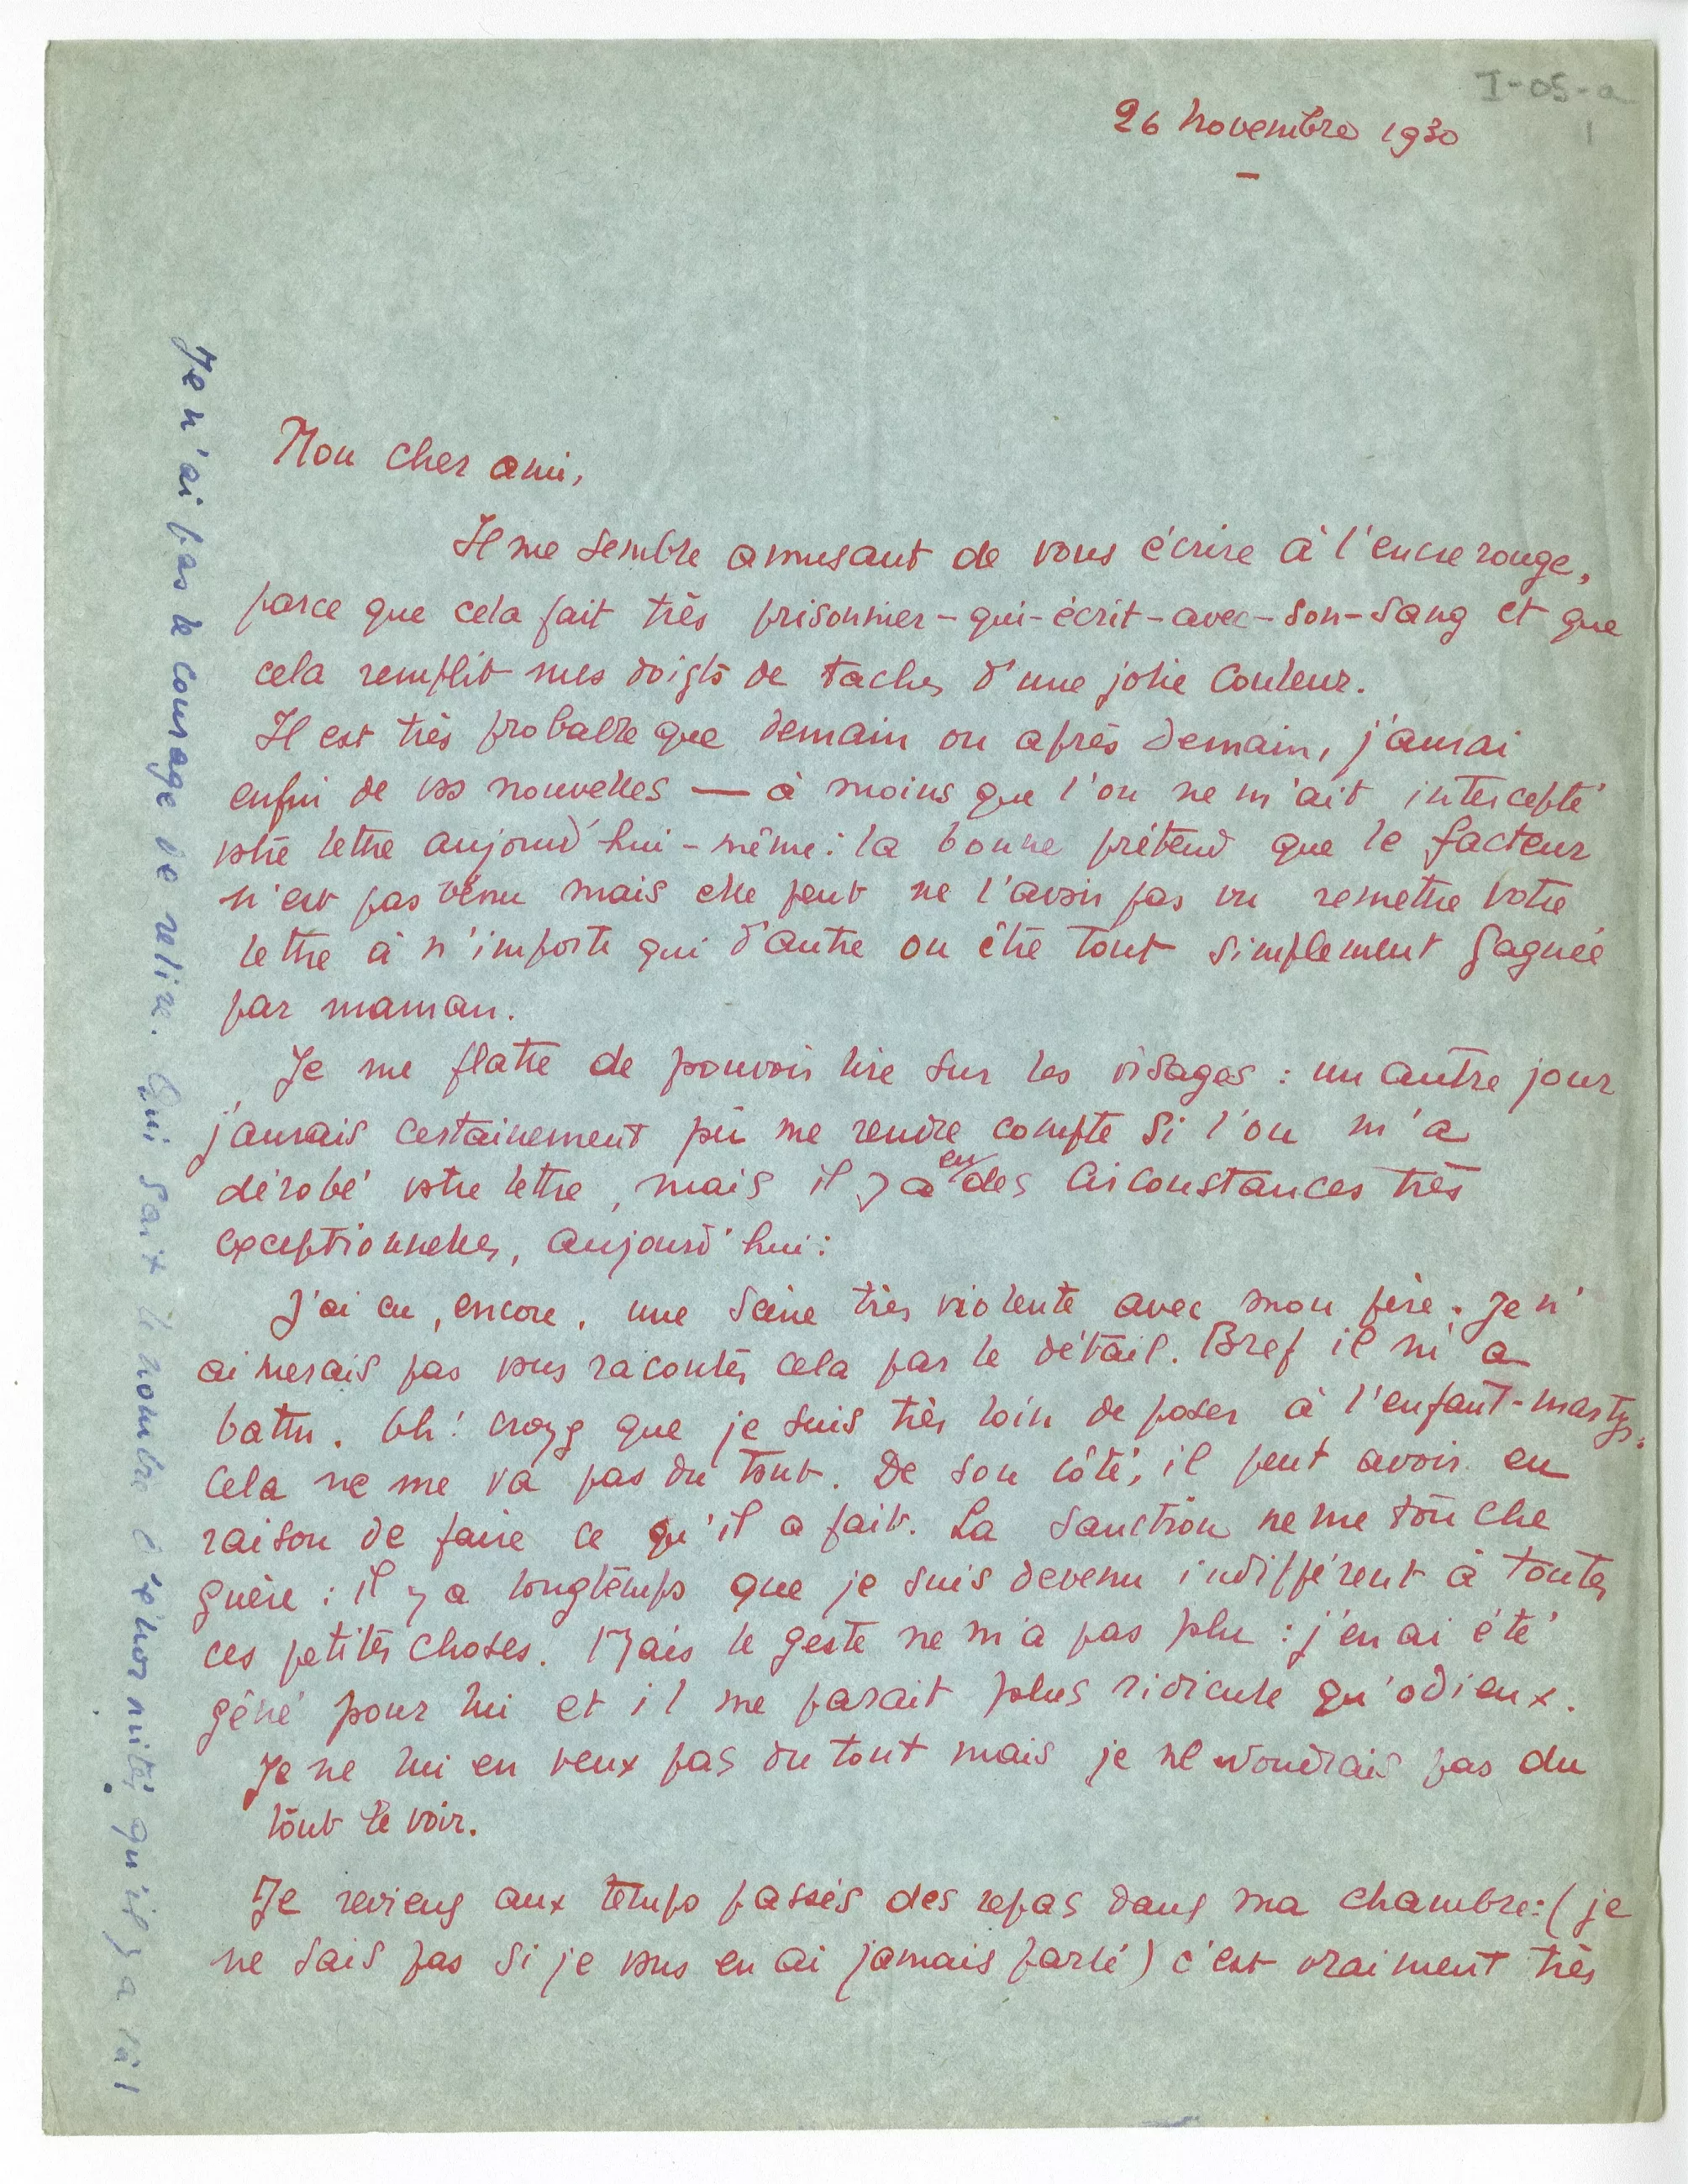 I-05-a
1
26 novembre 1930
Mon cher ami,
Il me semble amusant de vous écrire à l'encre rouge,
parce que cela fait très prisonnier-qui-écrit-avec-son-sang et que
cela remplit mes doigts de taches d'une jolie couleur.
Il est très probable que demain ou après demain, j'aurai
enfin de vos nouvelles — à moins que l'on ne m'ait intercepté
votre lettre aujourd'hui-même : la bonne prétend que le facteur
n'est pas venu mais elle peut ne l'avoir pas vu remettre votre
lettre à n'importe qui d'autre ou être tout simplement gagnée
par maman.
Je me flatte de pouvoir lire sur les visages : un autre jour
j'aurais certainement pû me rendre compte si l'on m'a
dérobé votre lettre, mais il y a eu des circonstances très
exceptionnelles, aujourd'hui :
J'ai eu, encore, une scène très violente avec mon père. Je n'
aimerais pas vous raconter cela par le détail. Bref il m'a
battu. Oh! croyez que je suis très loin de poser à l'enfant-martyr.
Cela ne me va pas du tout. De son côté, il peut avoir eu
raison de faire ce qu'il a fait. La sanction ne me touche
guère : il y a longtemps que je suis devenu indifférent à toutes
ces petites choses. Mais le geste ne m'a pas plu : j'en ai été
gêné pour lui et il me parait plus ridicule qu'odieux.
Je ne lui en veux pas du tout mais je ne voudrais pas du
tout le voir.
Je reviens aux temps passés des repas dans ma chambre : (je
ne sais pas si je vous en ai jamais parlé) c'est vraiment très
Je n'ai pas le courage de relire. Qui sait le nombre d'énormités qu'il y a là !